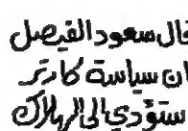 قال سعود الفيصل
ان سياسة كارتر
ستؤدي الى الهلاك